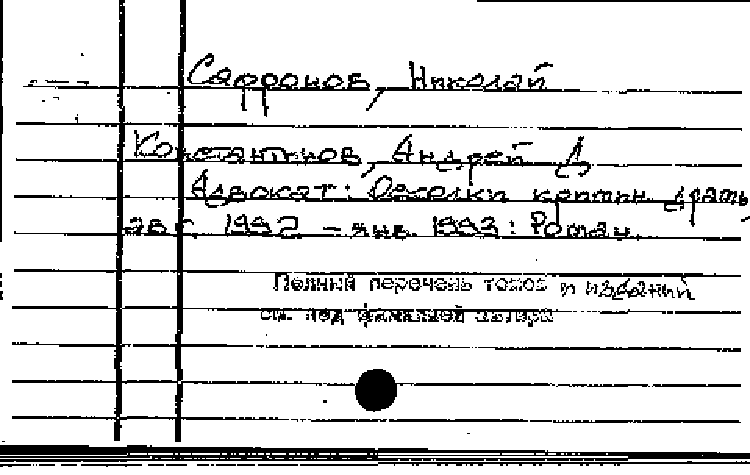 Сафронов, Николай
Константинов, Андрей Д
Адвокат: Осколки крими. драмы,
авг. 1992 – янв. 1993: Роман.
Полный перечень томов и изданий
см. под фамилией автора